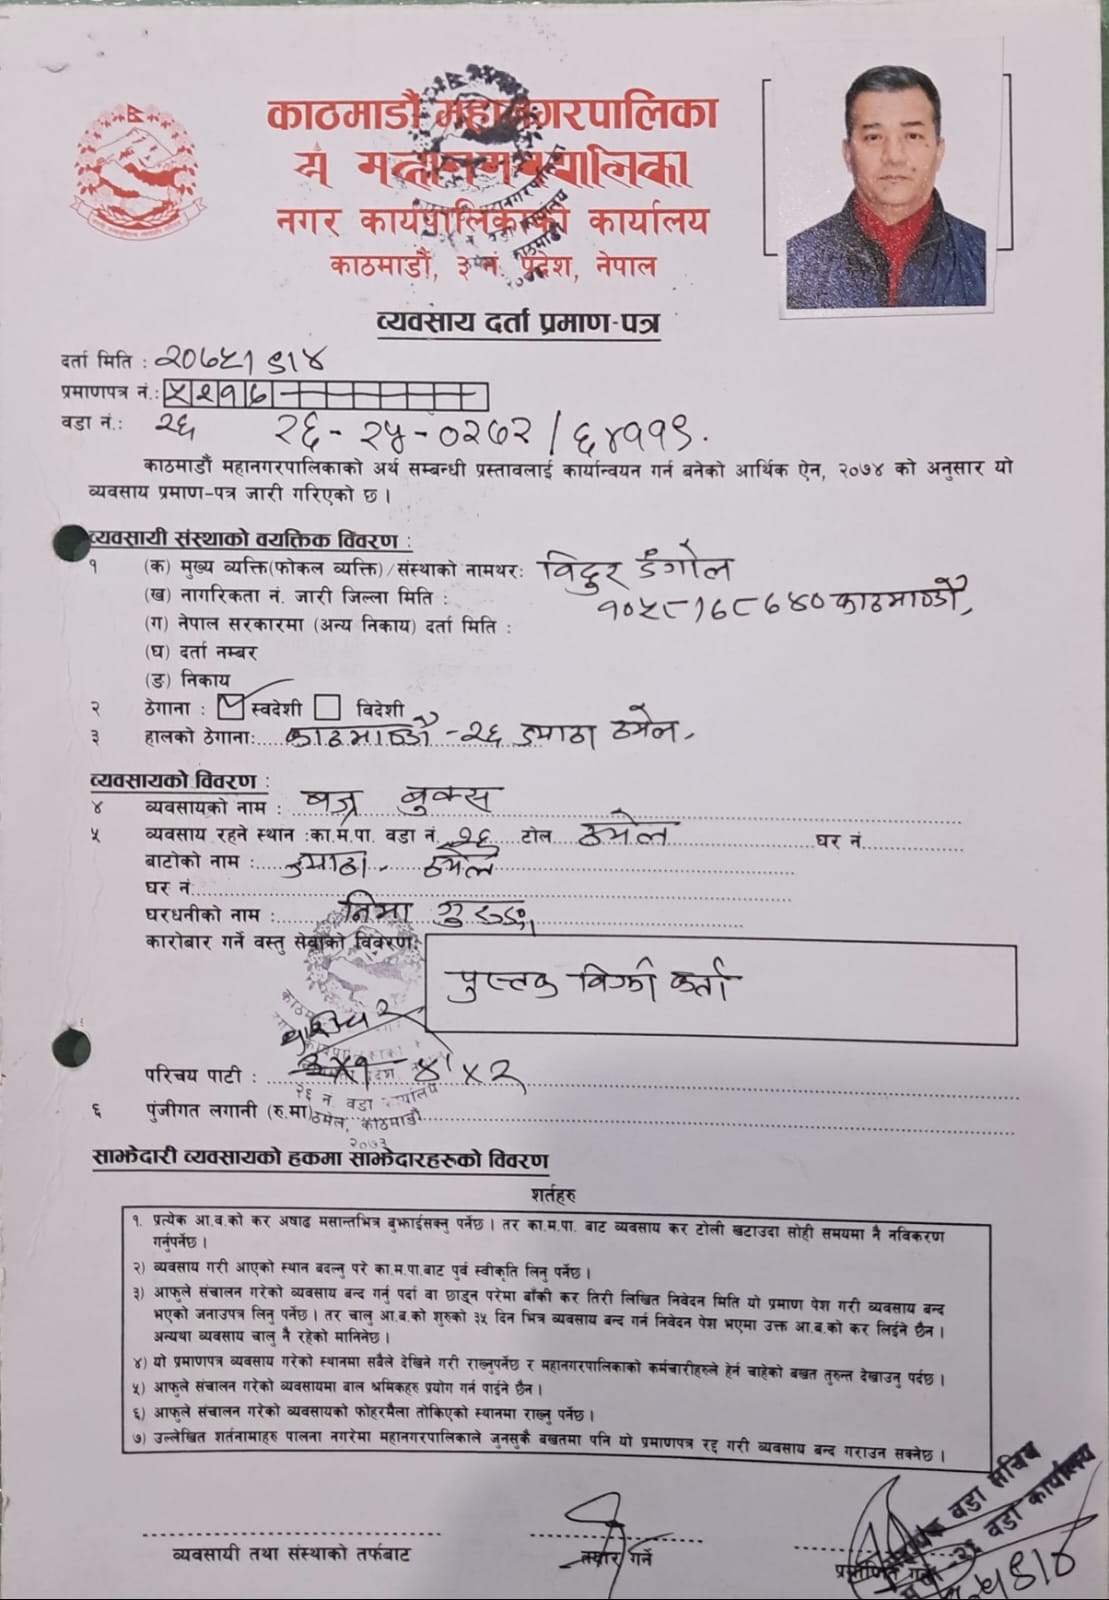 काठमाडौं महानगरपालिका
नगर कार्यपालिकाको कार्यालय
काठमाडौं, ३ नं. प्रदेश, नेपाल
व्यवसाय दर्ता प्रमाण-पत्र
दर्ता मिति : २०७५।९।४
प्रमाणपत्र नं.: ५२१७
वडा नं.: २६ २६-२५-०२७२/६४११९.
काठमाडौं महानगरपालिकाको अर्थ सम्बन्धी प्रस्तावलाई कार्यान्वयन गर्न बनेको आर्थिक ऐन, २०७४ को अनुसार यो
व्यवसाय प्रमाण-पत्र जारी गरिएको छ ।
व्यवसायी संस्थाको वयक्तिक विवरण :
१ (क) मुख्य व्यक्ति(फोकल व्यक्ति)/संस्थाको नामथर: विदुर डंगोल
(ख) नागरिकता नं. जारी जिल्ला मिति : काठमाण्डौ
(ग) नेपाल सरकारमा (अन्य निकाय) दर्ता मिति :
(घ) दर्ता नम्बर
(ङ) निकाय
२ ठेगाना : स्वदेशी विदेशी
३ हालको ठेगाना: काठमाण्डौ -२६ ठमेल
व्यवसायको विवरण :
४ व्यवसायको नाम : बज्र बुक्स
५ व्यवसाय रहने स्थान :का.म.पा. वडा नं. २६ टोल ठमेल घर नं.
बाटोको नाम : ठमेल
घर नं.
घरधनीको नाम : निमा गुरुङ
कारोबार गर्ने वस्तु सेवाको विवरण: पुस्तक बिक्री कर्ता
परिचय पाटी : ४'x२
६ पुंजीगत लगानी (रु.मा)
२६ नं. वडा कार्यालय
ठमेल, काठमाडौं
२०७३
साझेदारी व्यवसायको हकमा साझेदारहरुको विवरण
शर्तहरु
१. प्रत्येक आ.व.को कर अषाढ मसान्तभित्र बुझाईसक्नु पर्नेछ । तर का.म.पा. बाट व्यवसाय कर टोली खटाउदा सोही समयमा नै नविकरण
गर्नुपर्नेछ ।
२) व्यवसाय गरी आएको स्थान बदल्नु परे का.म.पा.बाट पुर्व स्वीकृति लिनु पर्नेछ ।
३) आफुले संचालन गरेको व्यवसाय बन्द गर्नु पर्दा वा छाड्न परेमा बाँकी कर तिरी लिखित निवेदन मिति यो प्रमाण पेश गरी व्यवसाय बन्द
भएको जनाउपत्र लिनु पर्नेछ । तर चालु आ.ब.को शुरुको ३५ दिन भित्र व्यवसाय बन्द गर्न निवेदन पेश भएमा उक्त आ.ब.को कर लिईने छैन ।
अन्यथा व्यवसाय चालु नै रहेको मानिनेछ ।
४) यो प्रमाणपत्र व्यवसाय गरेको स्थानमा सबैले देखिने गरी राख्नुपर्नेछ र महानगरपालिकाको कर्मचारीहरुले हेर्न चाहेको बखत तुरुन्त देखाउनु पर्दछ ।
५) आफुले संचालन गरेको व्यवसायमा बाल श्रमिकहरु प्रयोग गर्न पाईने छैन ।
६) आफुले संचालन गरेको व्यवसायको फोहरमैला तोकिएको स्थानमा राख्नु पर्नेछ ।
७) उल्लेखित शर्तनामाहरु पालना नगरेमा महानगरपालिकाले जुनसुकै बखतमा पनि यो प्रमाणपत्र रद्द गरी व्यवसाय बन्द गराउन सक्नेछ ।
व्यवसायी तथा संस्थाको तर्फबाट तयार गर्ने प्रमाणित गर्ने
वडा सचिव
वडा कार्यालय